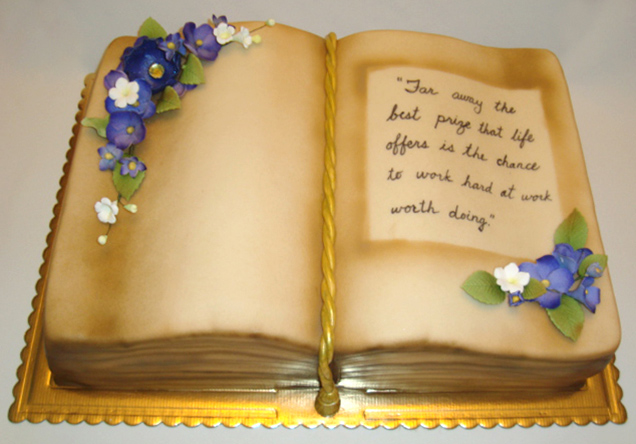 "Far away the
best prize that life
offers is the chance
to work hard at work
worth doing."